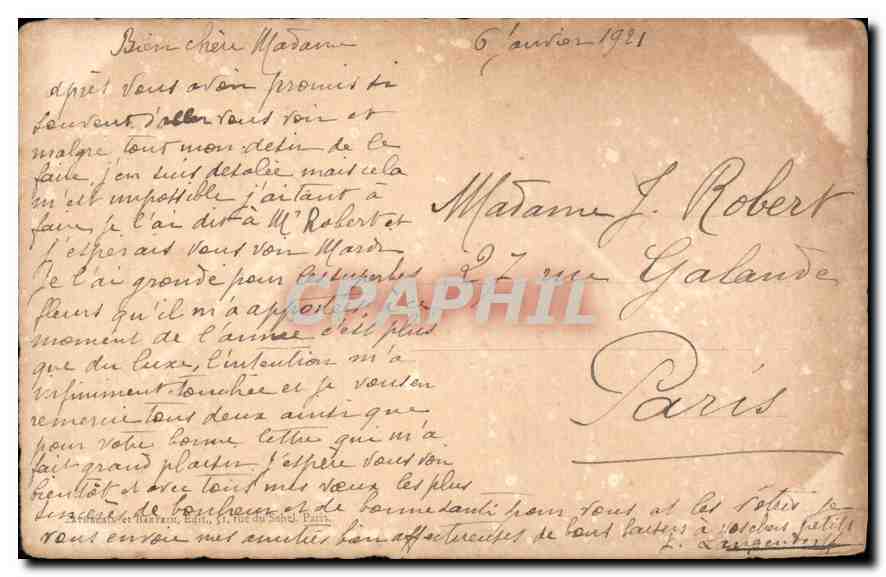 Bien chère Madame
6 Janvier 1921
après vous avoir promis si
souvent d'aller vous voir et
malgre tout mon desir de le
faire j'en suis desolée mais cela
m'est impossible j'ai tant à
faire, je l'ai dit à Mr Robert et
j'esperais vous voir Mardi
Je l'ai grondé pour les superbes
fleurs qu'il m'a apportées, ce
moment de l'année c'est plus
que du luxe, l'intention m'a
infiniment touchée et je vous en
remercie tous deux ainsi que
pour votre bonne lettre qui m'a
fait grand plaisir. J'espère vous voir
bientôt et avec tous mes vœux les plus
sincères de bonheur et de bonne santé pour vous et les votres je
vous envoie mes amitiés bien affectueuses de bons baisers à vos chers petits
Madame J. Robert
27 rue Galande
Paris
et Edit., 51, rue du Paris
CPAPHIL